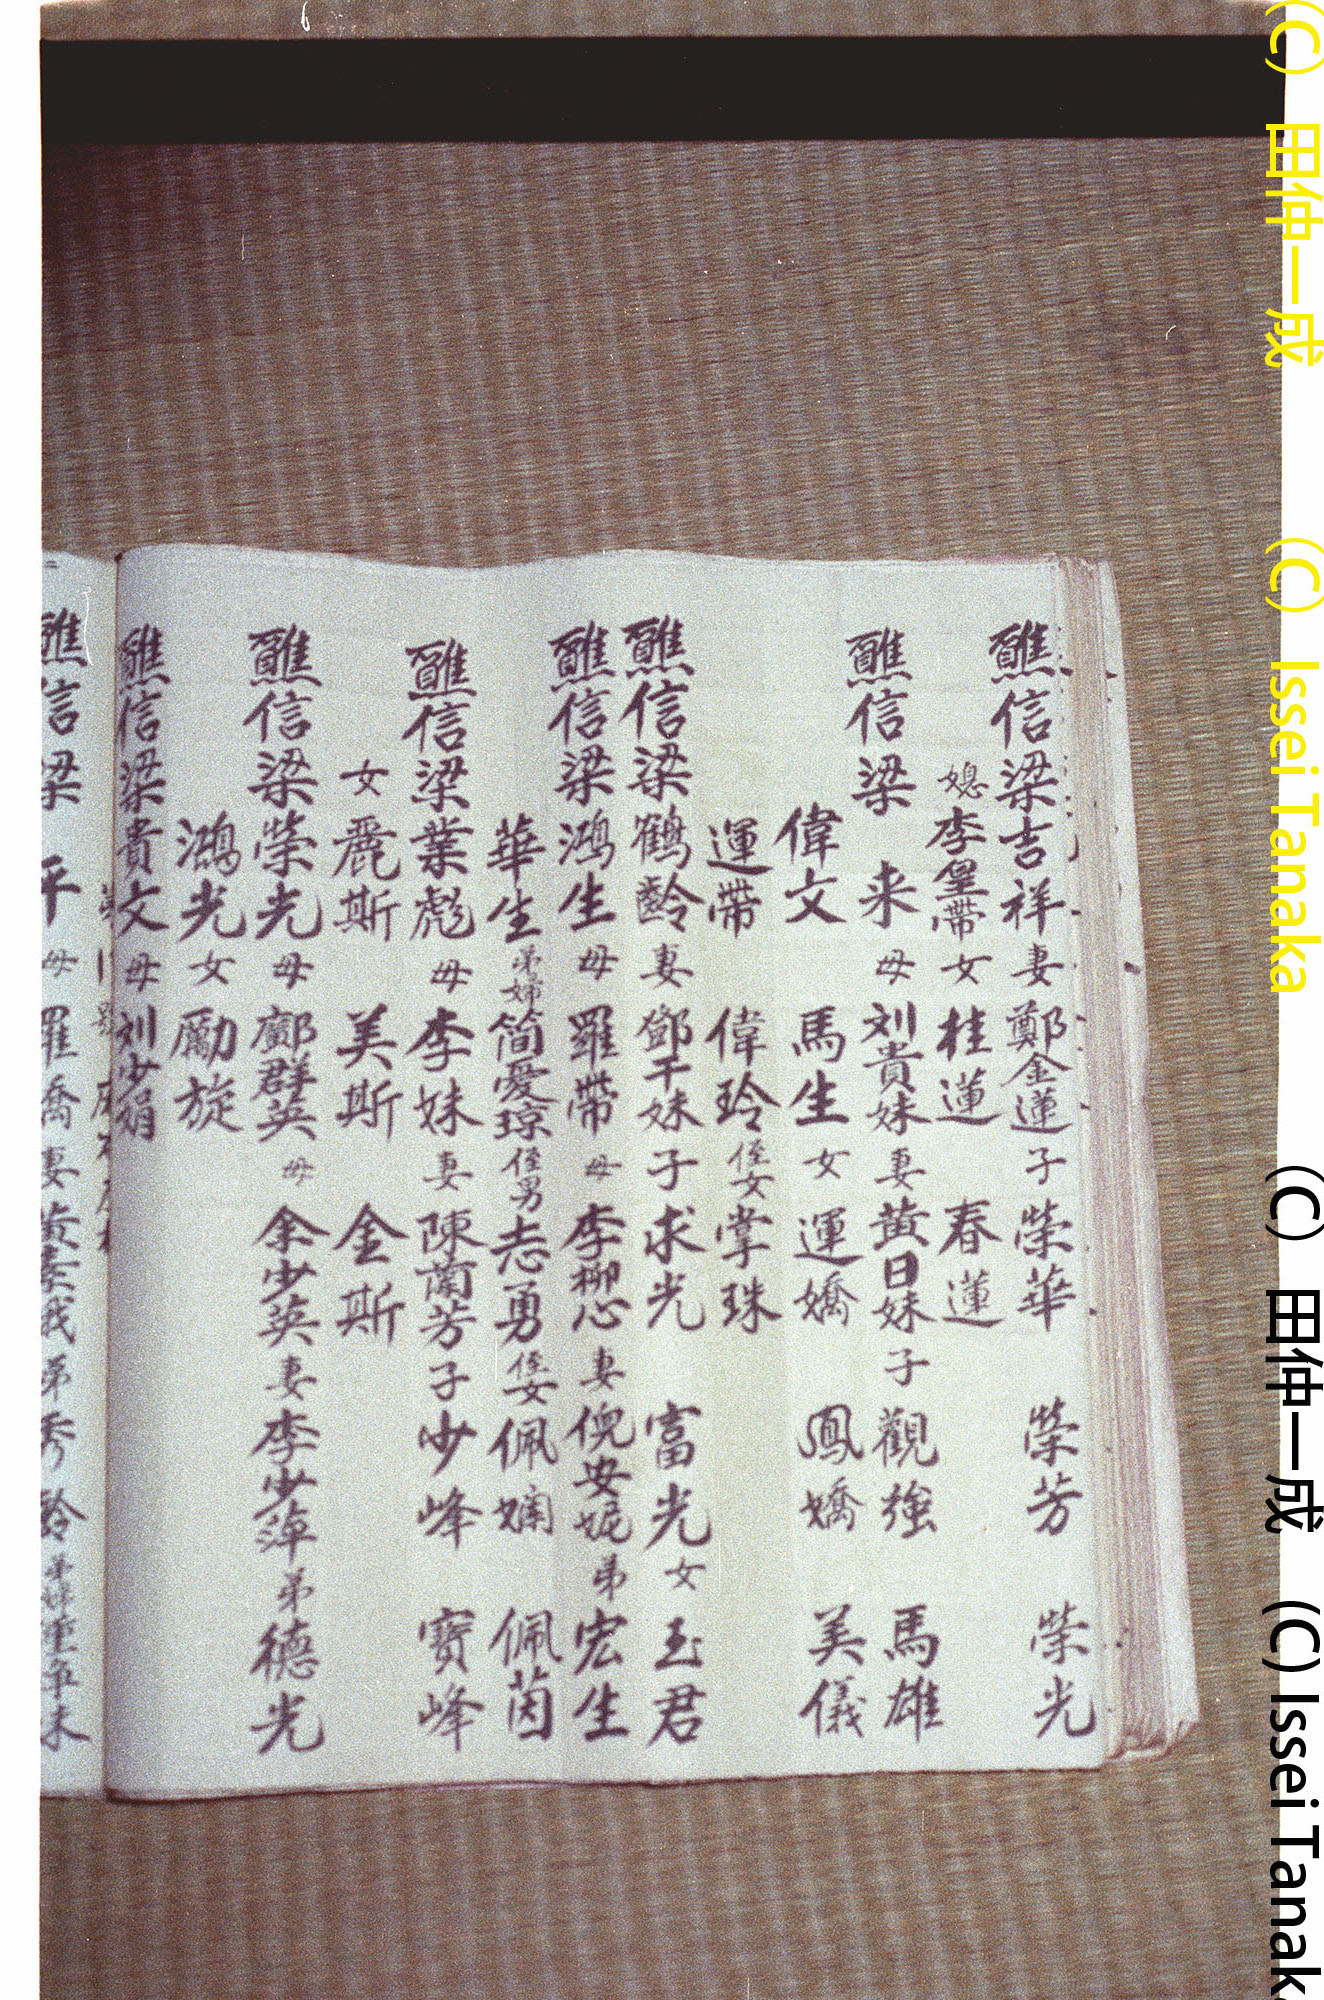 醮信梁吉祥妻鄭金蓮子榮華 榮芳 榮光
媳李皇帶女桂蓮 春蓮
醮信梁 来母刘貴妹妻黄日妹子觀強 馬雄
偉文 馬生女運嬌 鳳嬌 美儀
運帶 偉玲侄女掌珠
醮信梁鶴齡妻鄧干妹子求光 富光女玉君
醮信梁鴻生母羅帶母李柳心妻倪安妮弟宏生
華生弟婦简愛琼侄男志勇侄女佩嫻 佩茵
醮信梁業彪母李妹妻陳蘭芳子少峰 寶峰
女麗斯 美斯 金斯
醮信梁榮光母鄺群英母余少英妻李少萍弟德光
鴻光女勵旋
醮信梁貴文母刘少娟
醮信梁 平母羅喬妻黄 弟秀玲
(C) 田仲一成 (C) Issei Tanaka
(C) 田仲一成 (C) Issei Tanak